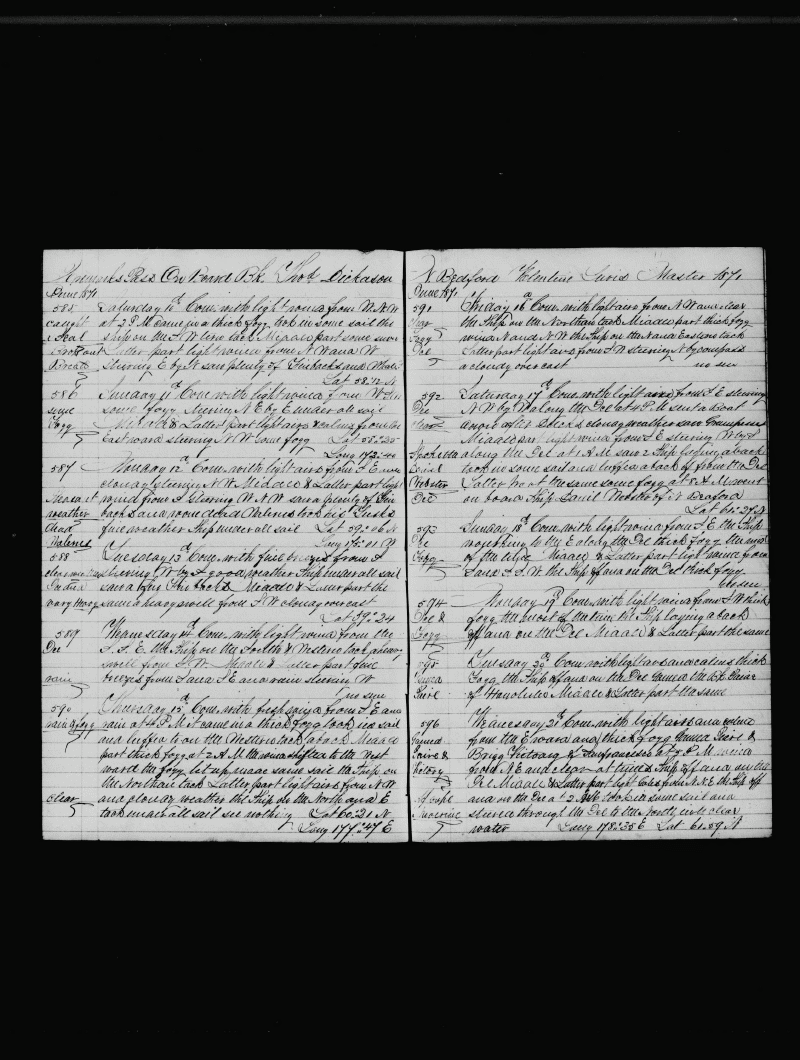 Remarks Pass On Board Bk. Thos Dickason
June 1871
585 Saturday 10 Com. with light wind from W.N.W
caught at 2 P M came in a thick fogg took in some sail the
a Seal ship on the S W tack Middle part some
Latter part light wind from N W and W
Bread Steering E by N saw plenty of and Whale
Lat 58.12 N
586 Sunday 11 Com with light wind from W
some some fogg steering N E by E under all sail
Fogg Middle & Latter part light airs & calms from the
Eastward steering N W some fogg Lat 58:35
Long 172:40
587 Monday 12 Com. with light airs from S E
cloudy steering N W Middle & Latter part light
wind from S steering W N W saw a plenty of
weather backs and a dead Walrus took his Tusks
dead fine weather Ship under all sail Lat 59:06 N
Walrus Long 176:01 W
588 Tuesday 13 Com. with fine breezes from S
steering W by S good weather Ship under all sail
saw a Middle & Latter part the
same a heavy swell from S W cloudy overcast
Lat 59:24
589 Wednesday 14 Com. with light wind from the
S. S. E. the Ship on the South & Western tack a heavy
swell from S W. Middle & Latter part fine
rain breezes from S and S E and rain steering W
no sun
590 Thursday 15 Com. with fresh wind from S E and
rain & fogg rain at 4 P. M. it came in a thick fogg took in sail
and luffed to on the Western tack aback Middle
part thick fogg at 2 A M the wind shifted to the West
ward the fogg let up made some sail the Ship on
the Northern tack Latter part light airs from N W
clear and cloudy weather the Ship on the North and E
tack under all sail see nothing Lat 60:21 N
Long 177:47 E
N Bedford Valentine Lewis Master 1871
June 1871
591 Friday 16 Com. with light airs from N W and clear
the Ship on the Northern tack Middle part thick fogg
Fogg wind N and N W the Ship on the N and Eastern tack
Latter part light airs from S W steering N by compass
a cloudy over cast no sun
592 Saturday 17 Com. with light airs from S E steering
N W by W along the Ice at 4 P. M sent a Boat
Boat cloudy weather saw
Middle part light wind from S E steering W by S
along the Ice at 1 A M saw 2 Ship laying aback
took in some sail and luffed aback off from the Ice
Webster Latter part the same some fogg at 8 A M went
on board Ship Daniel Webster of N Bedford
Lat 61:27 N
593 Sunday 18 Com. with light wind from S E the Ship
working to the E along the Ice thick fogg the most
Foggy of the time Middle & Latter part light wind from
S and S S W. the Ship off and on the Ice thick fogg
594 Monday 19 Com. with light wind from S W thick
Ice & fogg the most of the time the Ship laying aback
Fogg off and on the Ice Middle & Latter part the same
595 Tuesday 20 Com. with light airs and calms thick
Fogg the Ship off and on the Ice Gamed the Bk
of Honolulu Middle & Latter part the same
596 Wednesday 21 Com. with light airs and calms
Gamed from the E ward and thick fogg Gamed &
Brigg Victoria of San francisco at 7 P. M wind
Victory from N E and clear at times Ship off and on the
Ice Middle & Latter part light from N. N. E the Ship off
and on the Ice at 2 A M took in some sail and
steered through the Ice to the North in the clear
water Long 178:35 E Lat 61:59 N